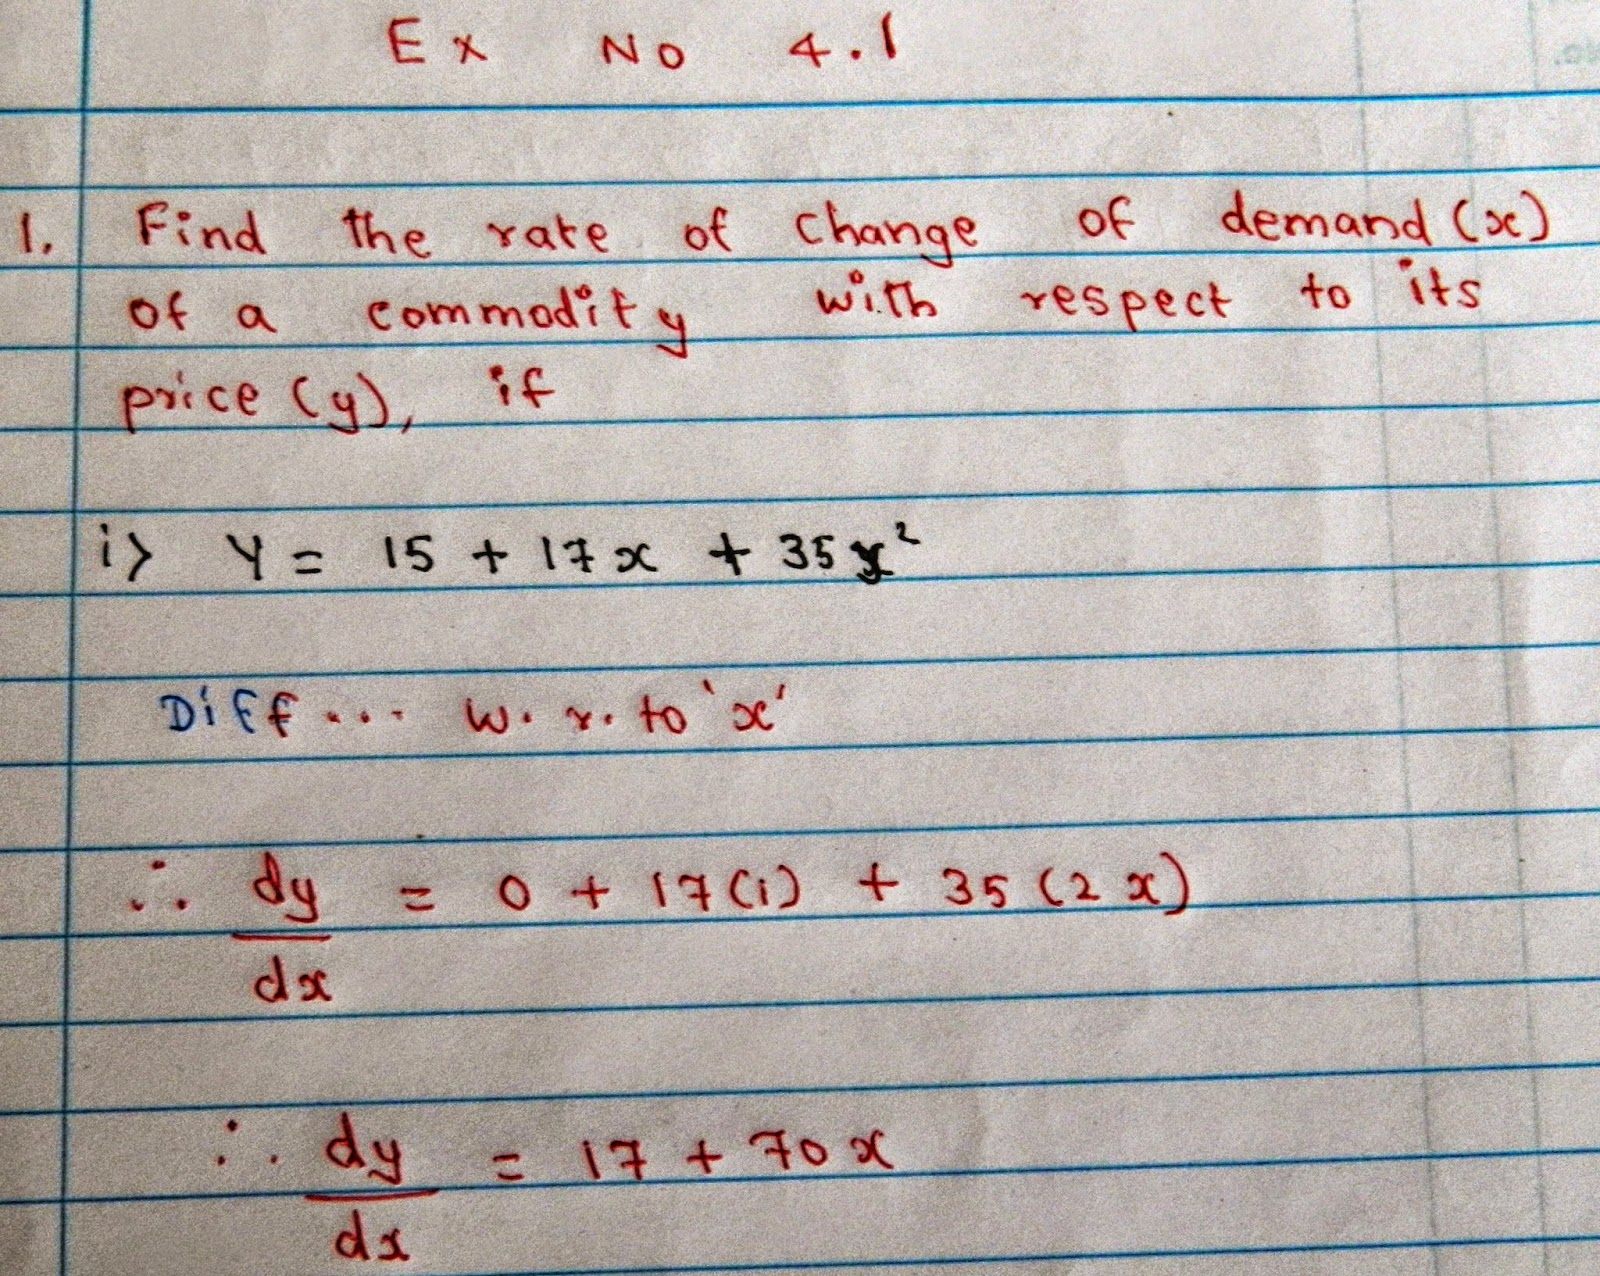 Ex No 4.1
1. Find the rate of change of demand (x)
of a commodity with respect to its
price (y), if
i> Y = 15 + 17x + 35x²
Diff... w.r. to 'x'
∴ dy/dx = 0 + 17(1) + 35(2x)
∴ dy/dx = 17 + 70x